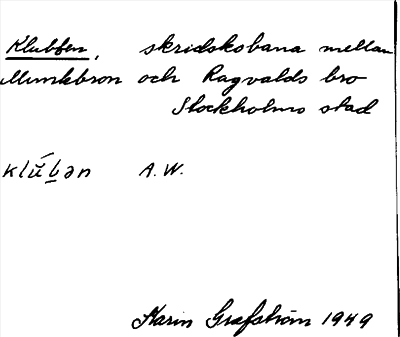 Klubben, skridskobana mellan
Munkbron och Ragvalds bro
Stockholms stad
klŭ́b̲ən A.W.
Karin Grafström 1949